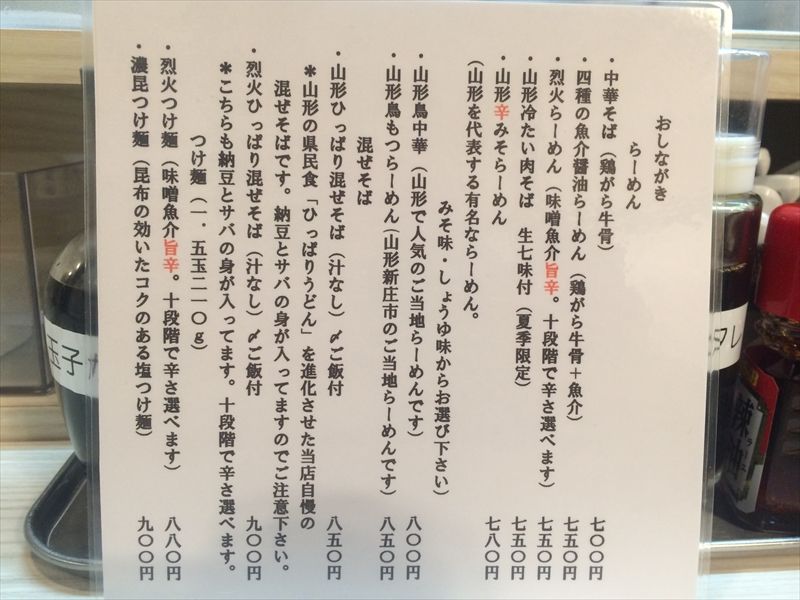 おしながき
らーめん
・中華そば（鶏がら牛骨） 七〇〇円
・四種の魚介醤油らーめん（鶏がら牛骨＋魚介） 七五〇円
・烈火らーめん（味噌魚介旨辛。十段階で辛さ選べます） 七五〇円
・山形冷たい肉そば 生七味付（夏季限定） 七五〇円
・山形辛みそらーめん 七八〇円
（山形を代表する有名ならーめん。
みそ味・しょうゆ味からお選び下さい）
・山形鳥中華（山形で人気のご当地らーめんです） 八〇〇円
・山形鳥もつらーめん（山形新庄市のご当地らーめんです） 八五〇円
混ぜそば
・山形ひっぱり混ぜそば（汁なし）〆ご飯付 八五〇円
＊山形の県民食「ひっぱりうどん」を進化させた当店自慢の
混ぜそばです。納豆とサバの身が入ってますのでご注意下さい。
・烈火ひっぱり混ぜそば（汁なし）〆ご飯付 九〇〇円
＊こちらも納豆とサバの身が入ってます。十段階で辛さ選べます。
つけ麺（一．五玉二一〇ｇ）
・烈火つけ麺（味噌魚介旨辛。十段階で辛さ選べます） 八八〇円
・濃昆つけ麺（昆布の効いたコクのある塩つけ麺） 九〇〇円
玉子
タレ
辣油